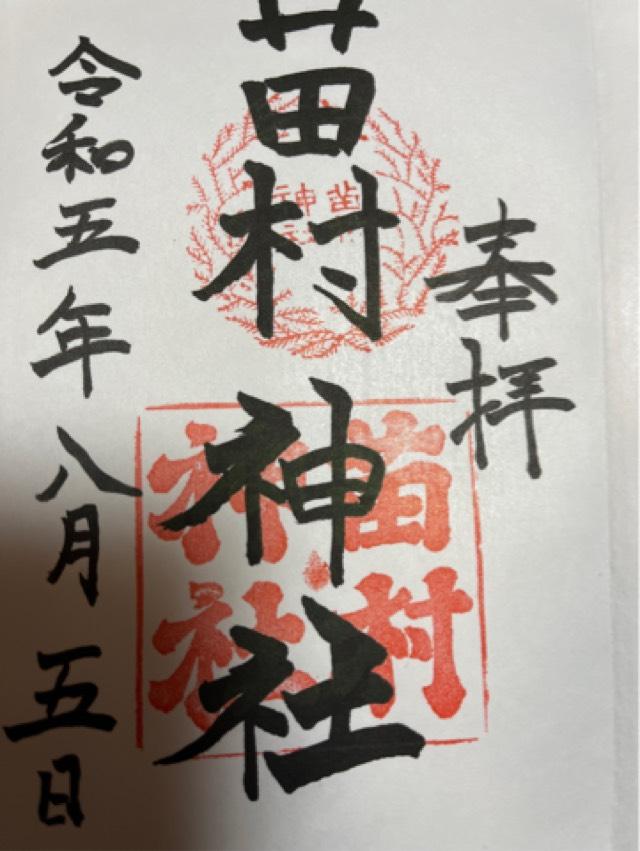 奉拝
苗村神社
令和五年八月五日
苗村
神社
苗
神